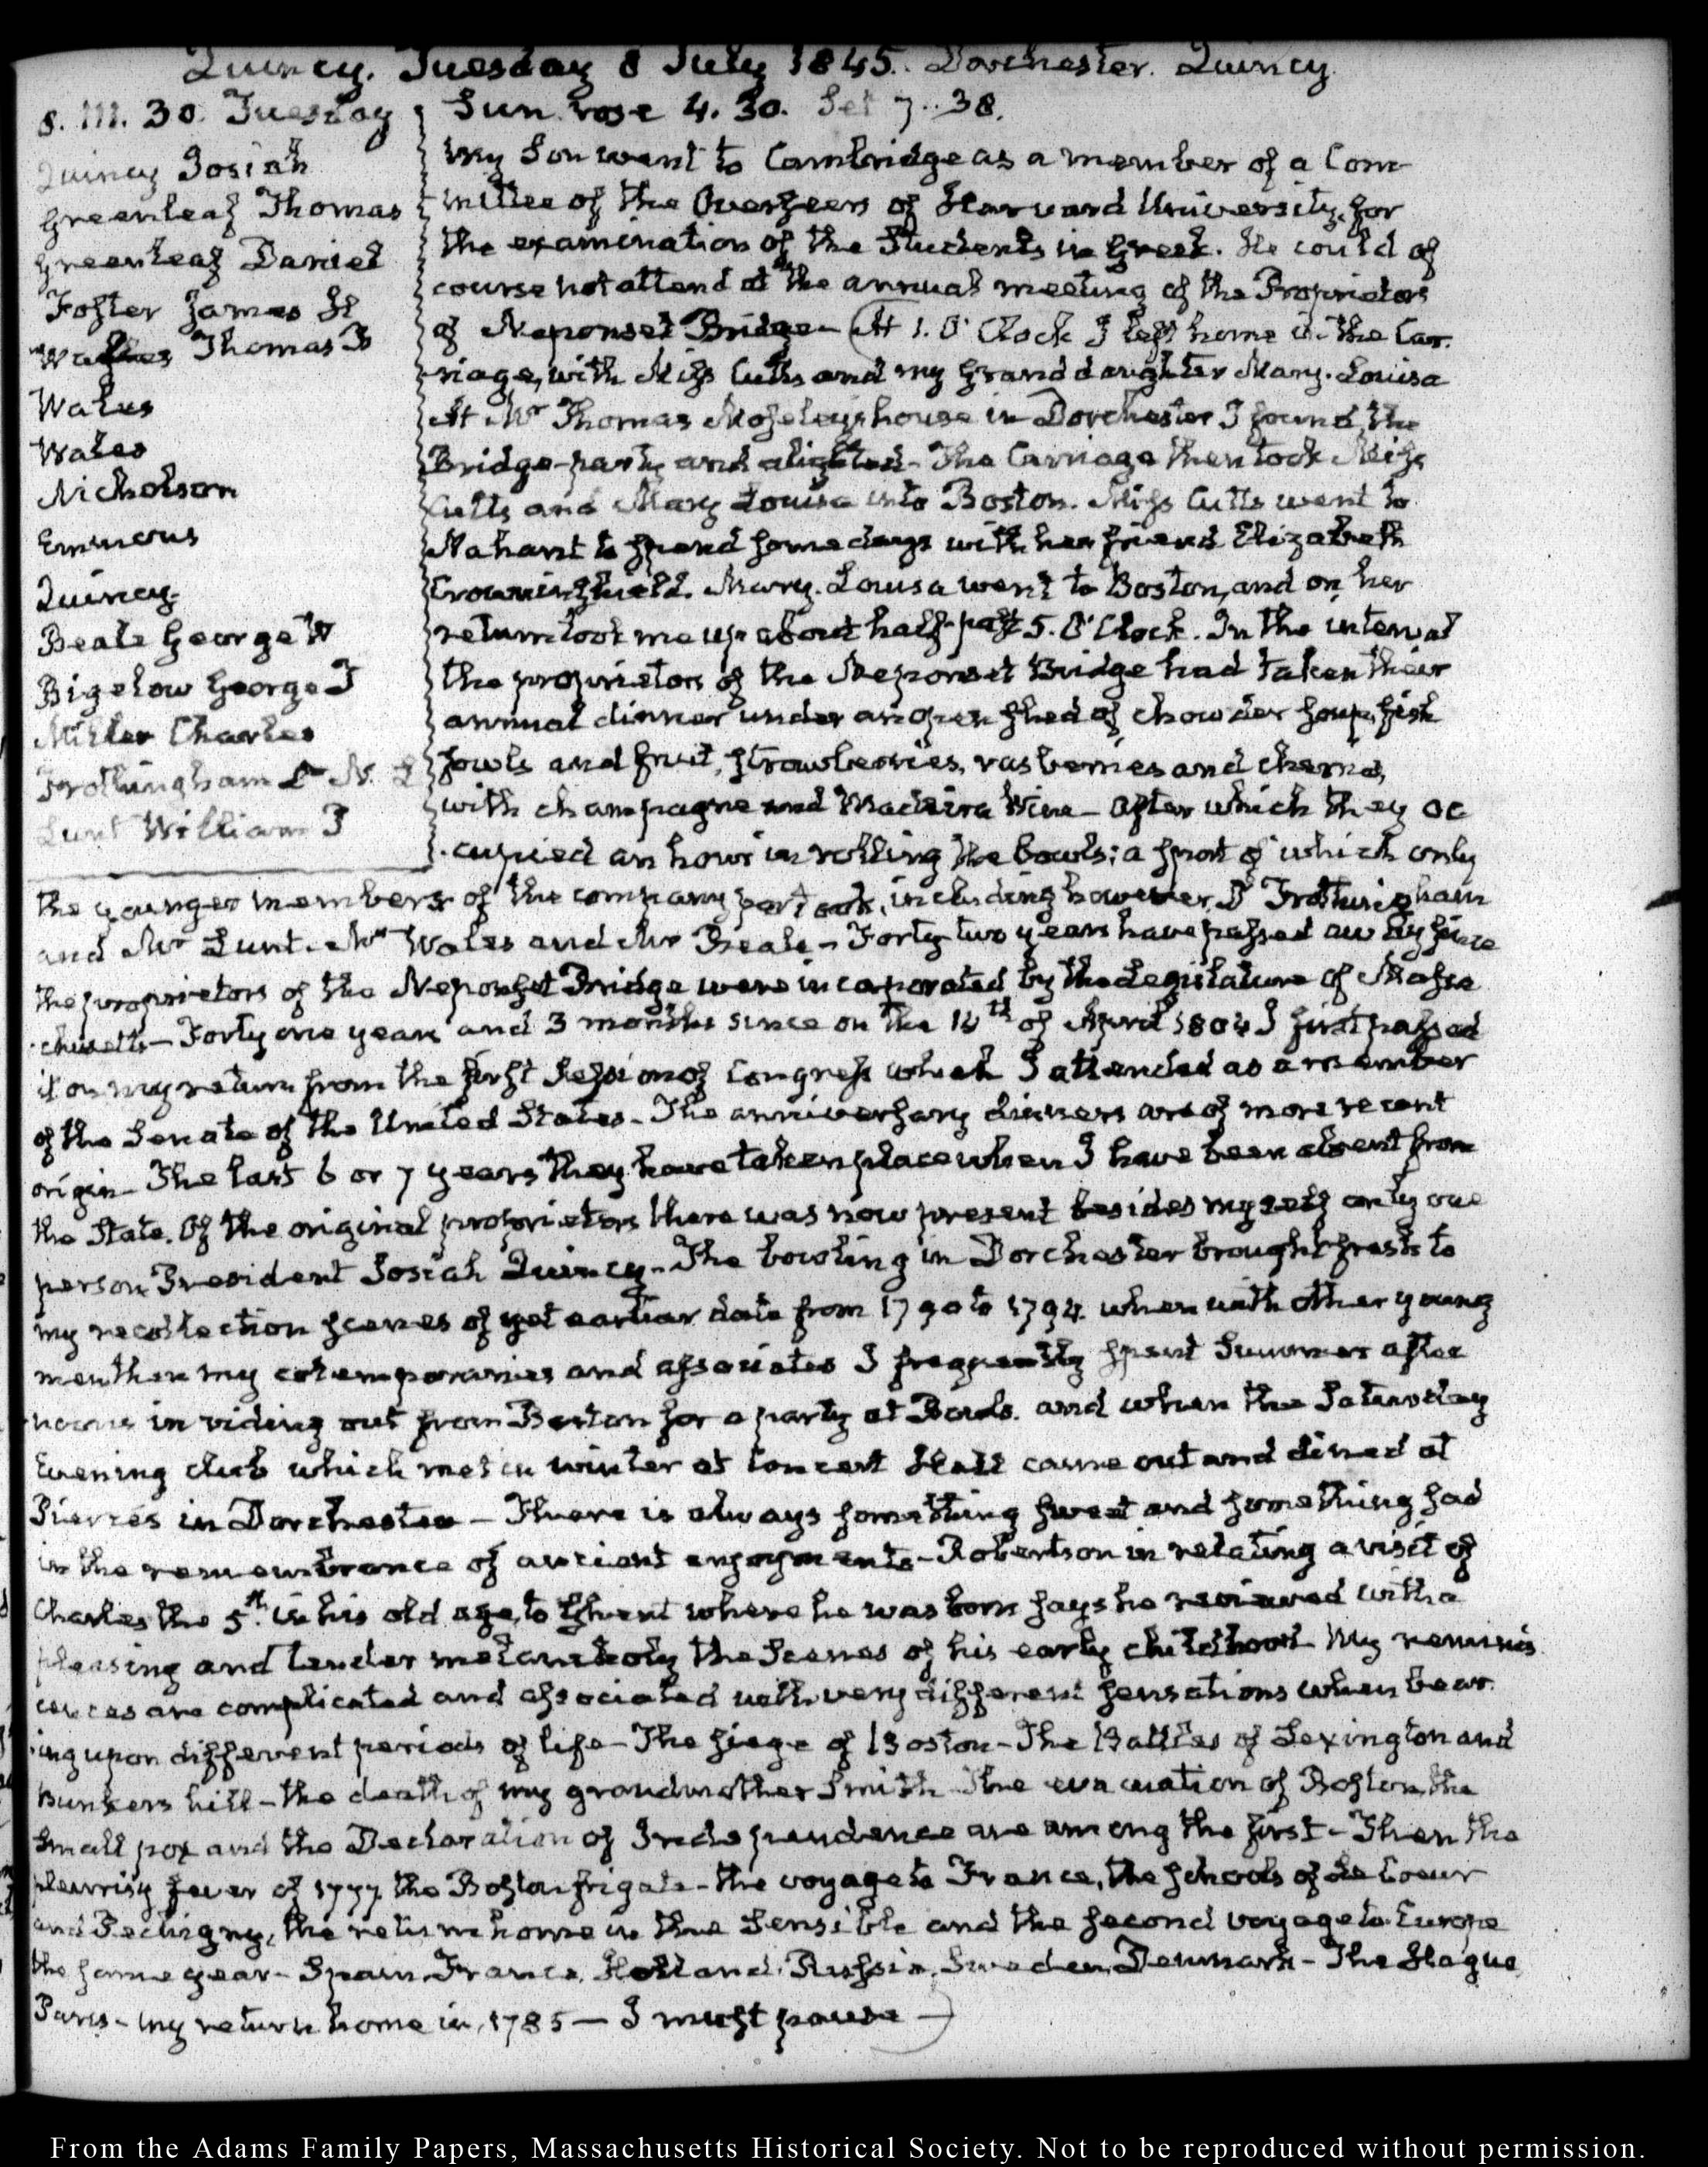 Quincy. Tuesday 8 July 1845. Dorchester. Quincy
8. III. 30. Tuesday
Quincy Josiah
Greenleaf Thomas
Greenleaf Daniel
Foster James H
Thomas B
Wales
Wales
Nicholson
Emmons
Quincy
Beale George W
Bigelow George T
Miller Charles
Frothingham N. L
Lunt William P
Sun rose 4.30. Set 7..38.
My Son went to Cambridge as a member of a Com
mittee of the Overseers of Harvard University, for
the examination of the Students in Greek. He could of
course not attend at the annual meeting of the Proprietors
of Neponset Bridge – (At 1. O'Clock I left home in the Car-
riage, with Miss Cutts and my Grand daughter Mary-Louisa
At Mr Thomas Moseley's house in Dorchester I found the
Bridge-party and alighted – The Carriage then took Miss
Cutts and Mary Louisa into Boston. Miss Cutts went to
Nahant to spend some days with her friend Elizabeth
Crowninshield. Mary-Louisa went to Boston, and on her
return took me up about half-past 5. O'Clock. In the interval
the proprietors of the Neponset Bridge had taken their
annual dinner under an open shed of, chowder soup, fish
fowls and fruit, strawberries, rasberries and cherries,
with champagne and Madeira Wine – after which they oc
cupied an hour in rolling the bowls; a sport of which only
the younger members of the company partook, including however, Dr Frothingham
and Mr Lunt. Mr Wales and Mr Beale – Forty two years have passed away since
the proprietors of the Neponset Bridge were incorporated by the Legislature of Massa
chusetts – Forty one years and 3 months since on the th of April 1804 I first passed
it on my return from the first Session of Congress which I attended as a member
of the Senate of the United States – The anniversary dinners are of more recent
origin – The last 6 or 7 years they have taken place when I have been absent from
the State. Of the original proprietors there was now present besides myself only one
person President Josiah Quincy – The bowling in Dorchester brought fresh to
my recollection scenes of yet earlier date from 1790 to 1794. when with other young
men then my cotemporaries and associates I frequently spent Summer after
noons in riding out from Boston for a party at Bowls. and when the Saturday
Evening club which met in winter at Concert Hall came out and dined at
Pierre's in Dorchester – There is always something sweet and something sad
in the remembrance of ancient enjoyments – Robertson in relating a visit of
Charles the 5th. in his old age, to Ghent where he was born says he reviewed with a
pleasing and tender melancholy the Scenes of his early childhood – My reminis
cences are complicated and associated with very different sensations when bear-
ing upon different periods of life – The siege of Boston – The Battles of Lexington and
Bunkers hill – the death of my grandmother Smith – the evacuation of Boston, the
Small pox and the Declaration of Independence are among the first – Then the
pleurisy fever of 1777 the Boston frigate – the voyage to France, the schools of Le Coeur
and Pechigny, the return home in the Sensible and the second voyage to Europe
the same year – Spain, France, Holland, Russia, Sweden, Denmark – The Hague
Paris – my return home in, 1785 – I must pause –)
From the Adams Family Papers, Massachusetts Historical Society. Not to be reproduced without permission.